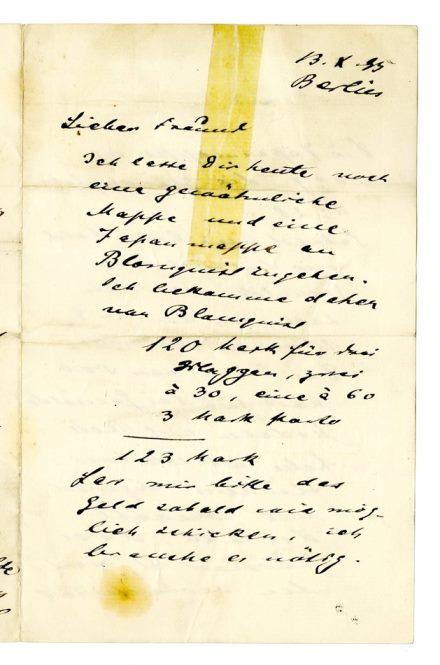 13. X 95
Berlin
Lieber Freund
Ich lasse Dir heute noch
eine gewöhnliche
Mappe und eine
Japanmappe an
Blomquist zugehen.
Ich bekomme daher
von Blomquist
120 Mark für drei
Mappen, zwei
à 30, eine à 60
3 Mark Porto
123 Mark
Las mir bitte das
Geld sobald wie mög-
lich schicken, ich
brauche es nötig.